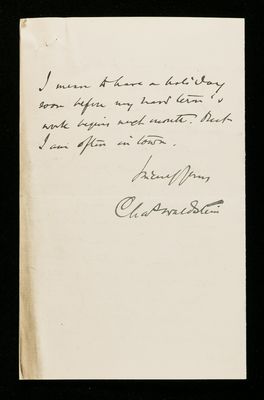 I mean to have a holiday
soon before my hard term's
work begins next month. But
I am often in town.
Sincerely yours
Chas Waldstein